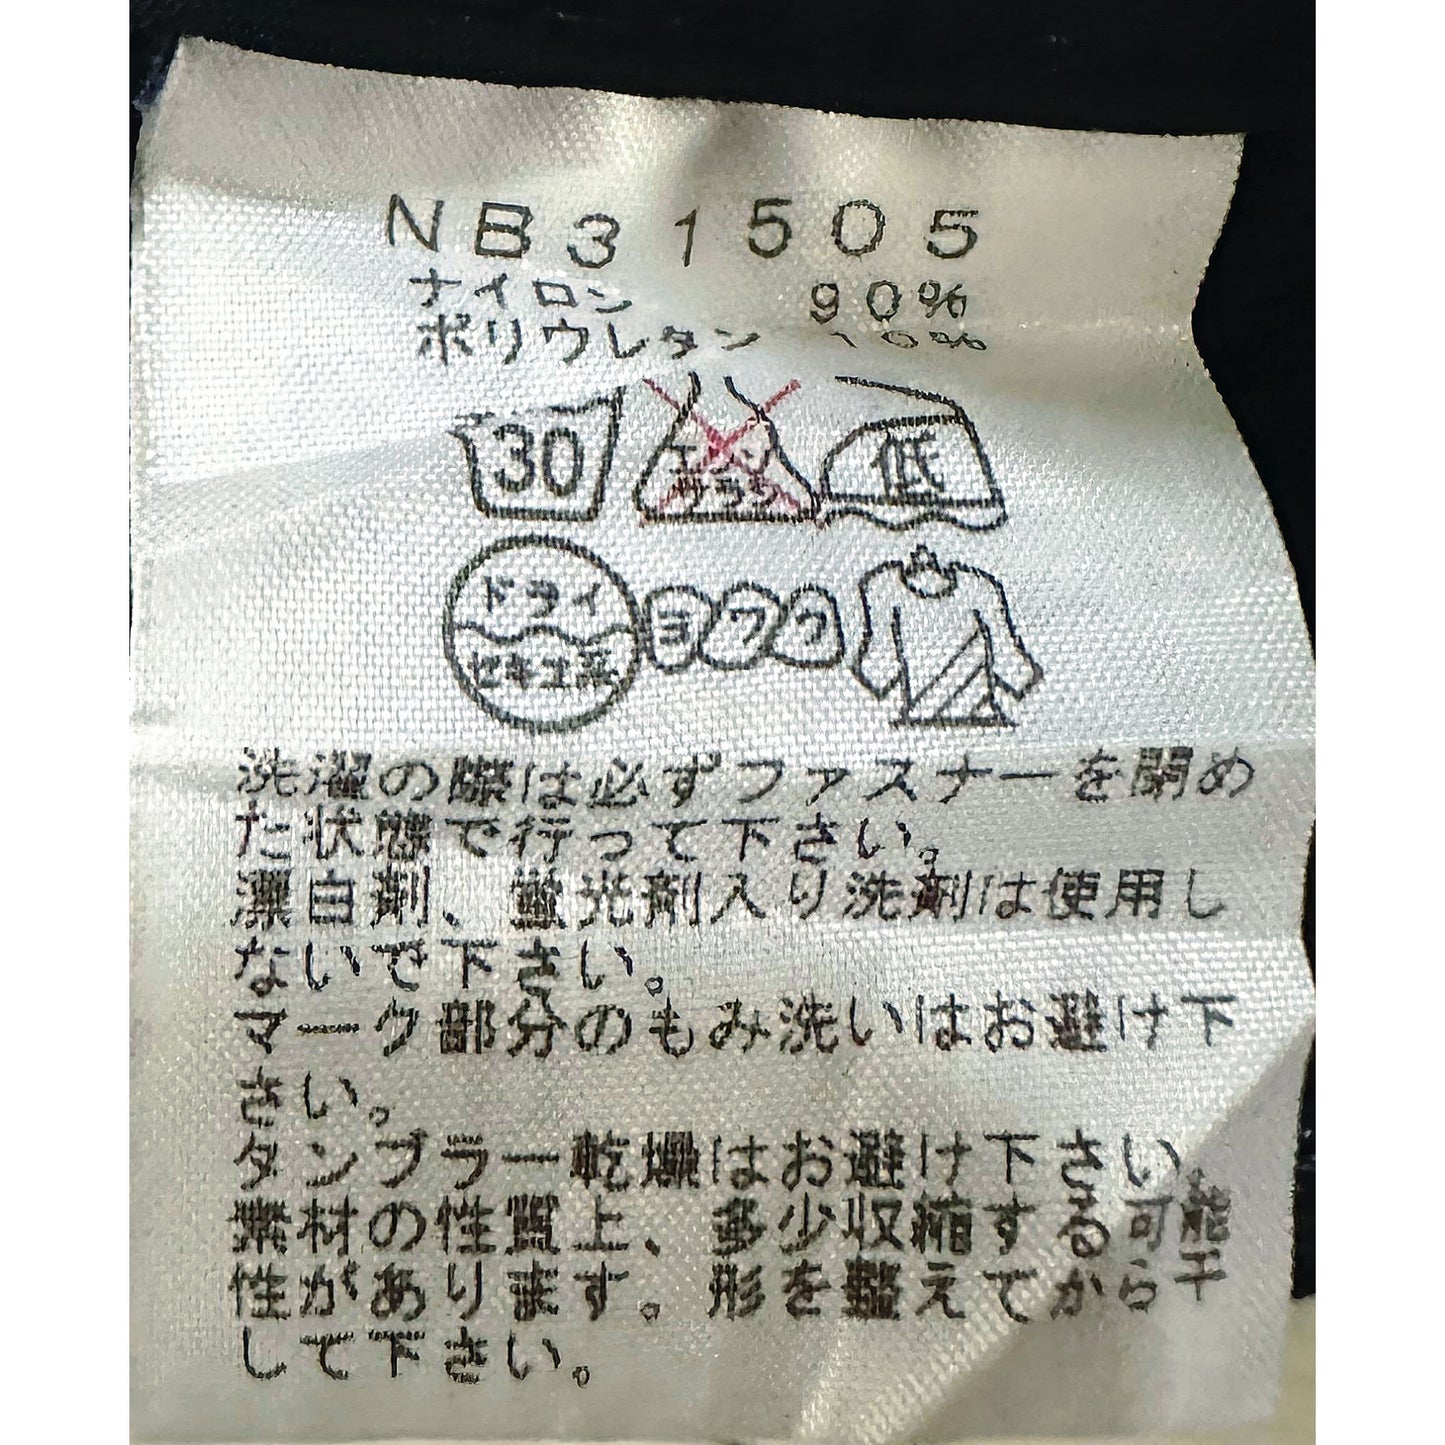 NB31505
ナイロン 90%
ポリウレタン 10%
30
エンソ
サラシ
低
ドライ
セキユ系
ヨワク
洗濯の際は必ずファスナーを閉め
た状態で行って下さい。
漂白剤、蛍光剤入り洗剤は使用し
ないで下さい。
マーク部分のもみ洗いはお避け下
さい。
タンブラー乾燥はお避け下さい。
素材の性質上、多少収縮する可能
性があります。形を整えてから干
して下さい。